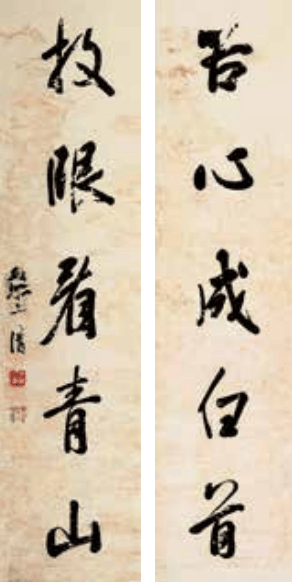 苦心成白首
放眼看青山